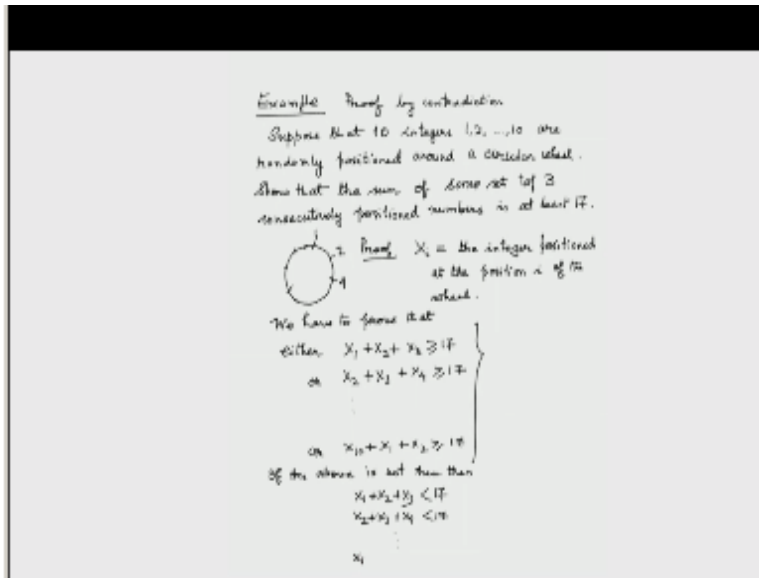 Example Proof by contradiction
Suppose that 10 integers 1,2, ...,10 are
randomly positioned around a circular wheel.
Show that the sum of some set of 3
consecutively positioned numbers is at least 17.
1
2
4
Proof Xi = the integer positioned
at the position i of the
wheel.
We have to prove that
either X1 + X2 + X3 ≥ 17
or X2 + X3 + X4 ≥ 17
or X10 + X1 + X2 ≥ 17
If the above is not then then
X1 + X2 + X3 < 17
X2 + X3 + X4 < 17
X1